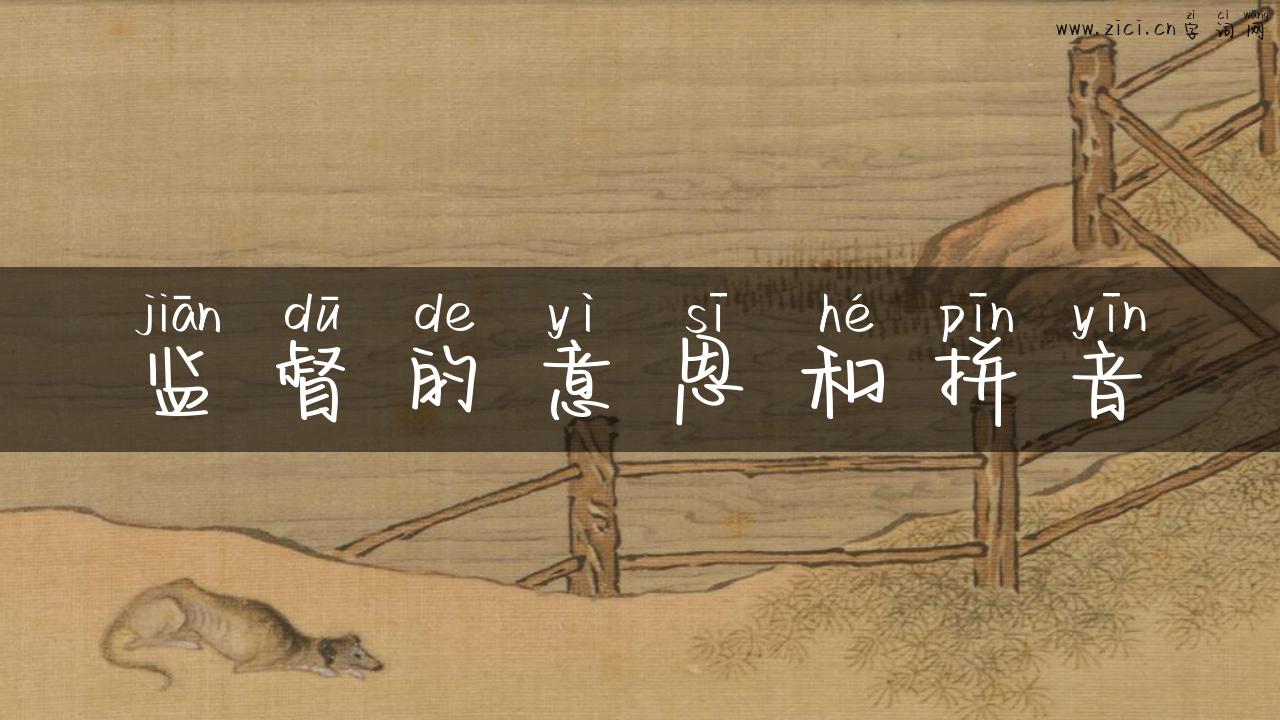 zi ci wang
www.zici.cn 字词网
jiān dū de yì sī hé pīn yīn
监督的意思和拼音